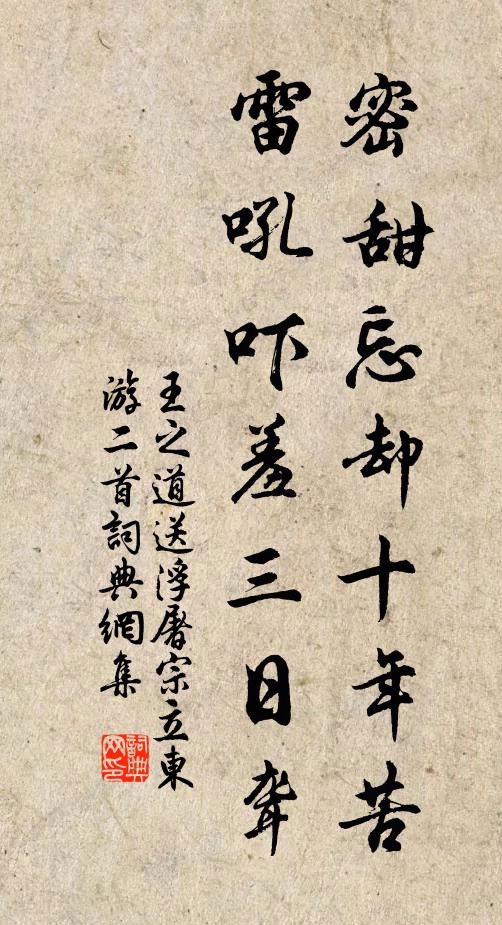 密甜忘却十年苦
雷吼吓羞三日聋
王之道送浮屠宗立東
游二首詞典網集
詞典网印